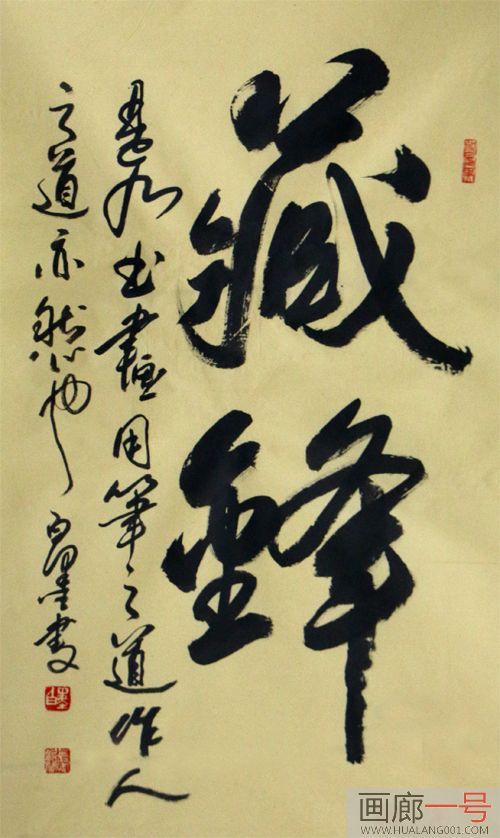 藏鋒
书畫用筆之道作人
之道亦然也
画廊一号
WWW.HUALANG001.COM